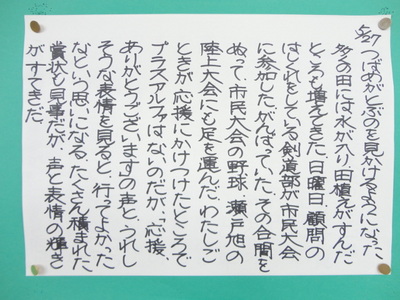 5/27 つばめがとぶのを見かけるようになった
多くの田には水が入り、田植えがすんだ
ところも増えてきた。日曜日、顧問の
はしくれをしている剣道部が市民大会
に参加した。がんばっていた。その合間を
ぬって、市民大会の野球、瀬戸旭の
陸上大会にも足を運んだ。わたしご
ときが応援にかけつけたところで
プラスアルファはないのだが、「応援
ありがとうございます」の声と、うれし
そうな表情を見ると、行ってよかった
なという思いになる。たくさん積まれた
賞状も見事だが、声と表情の輝き
がすてきだ。